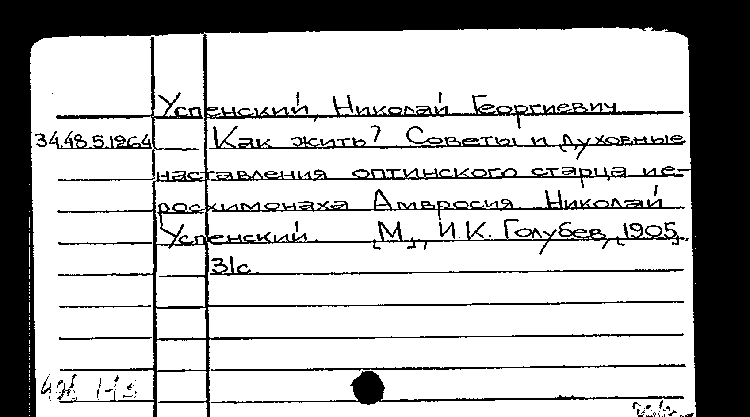 Успенский, Николай Георгиевич
34.48.5.1264 Как жить? Советы и духовные
наставления оптинского старца ие-
росхимонаха Амвросия. Николай
Успенский. [М.], И.К. Голубев, [1905].
31с.